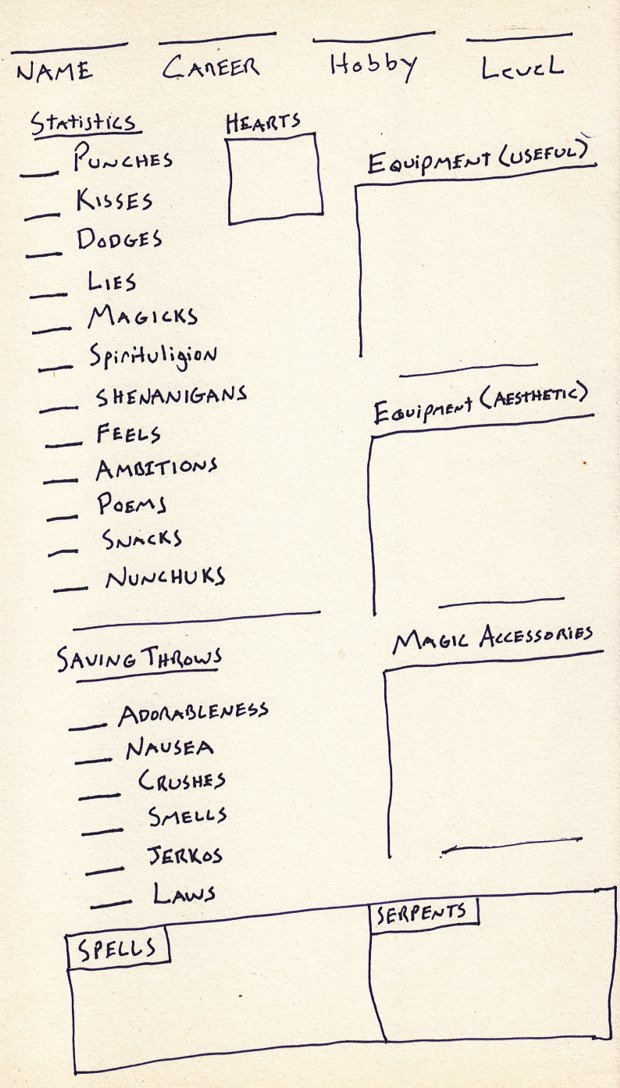 NAME CAREER Hobby LEVEL
Statistics
PUNCHES
KISSES
DODGES
LIES
MAGICKS
Spirituligion
SHENANIGANS
FEELS
AMBITIONS
POEMS
SNACKS
NUNCHUKS
HEARTS
EQUIPMENT (USEFUL)
EQUIPMENT (AESTHETIC)
MAGIC ACCESSORIES
SAVING THROWS
ADORABLENESS
NAUSEA
CRUSHES
SMELLS
JERKOS
LAWS
SPELLS
SERPENTS